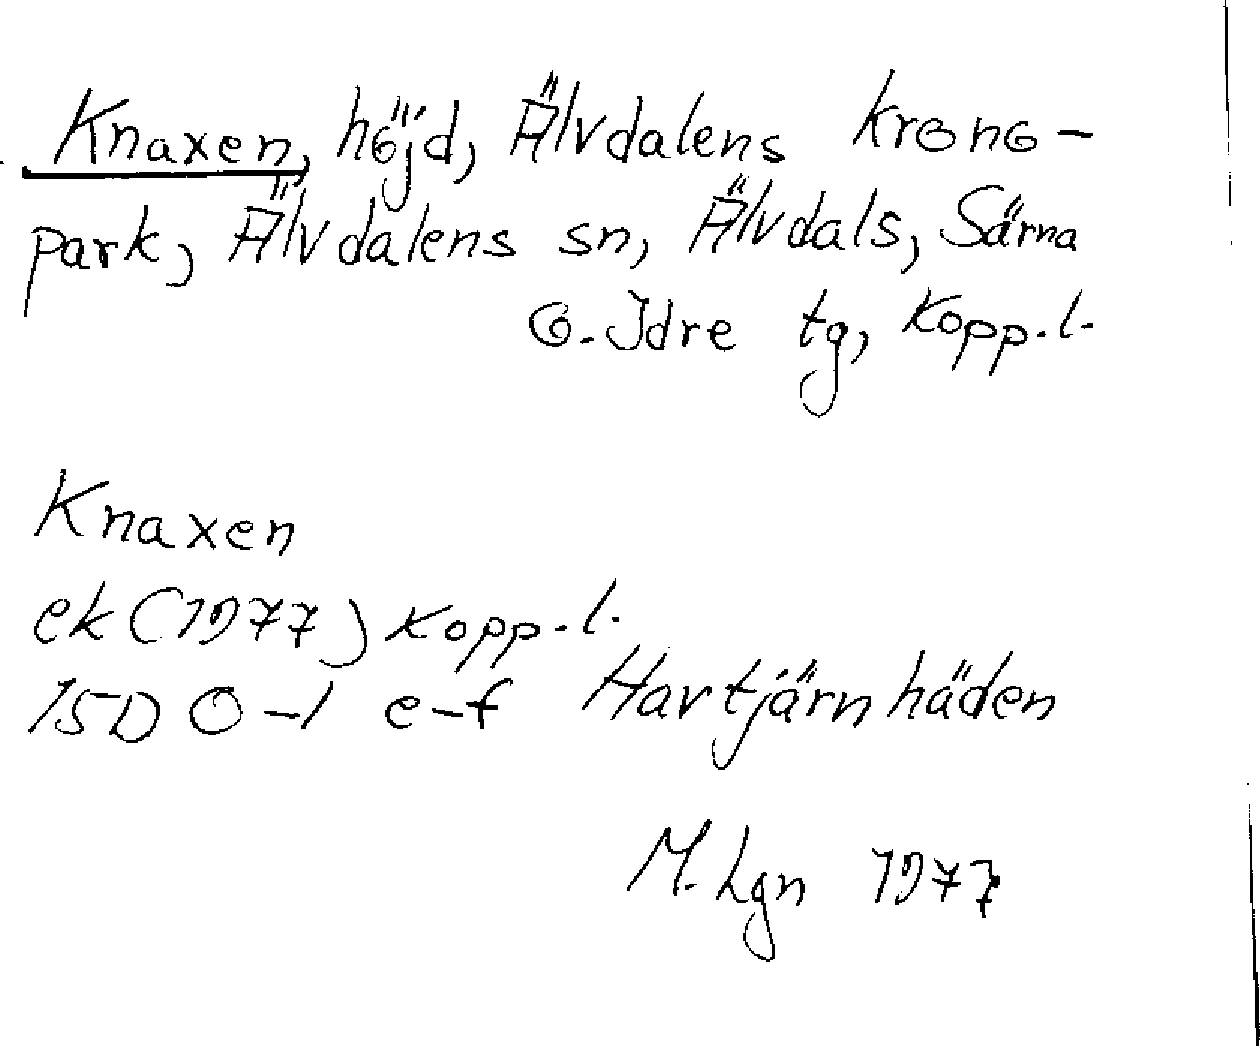 Knaxen, höjd, Älvdalens krono-
park, Älvdalens sn, Älvdals, Särna
o. Idre tg, Kopp. l.
Knaxen
ek (1977) Kopp. l.
15D 0-1 e-f Havtjärnhäden
M. Lgn 1977